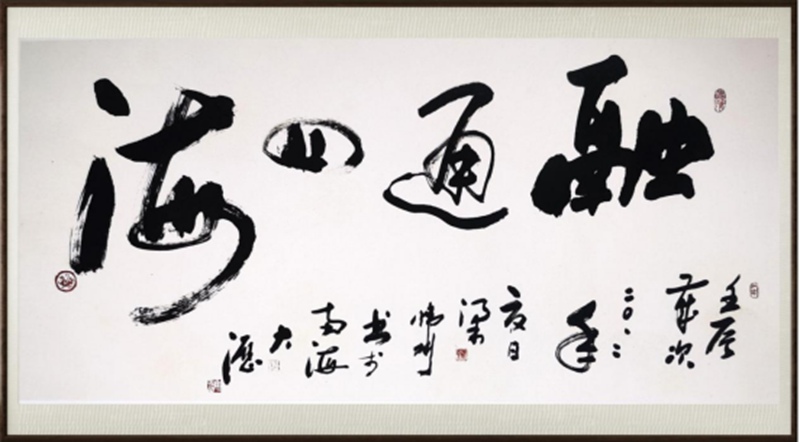 融通四海
壬辰
歲次
二〇一二
年
夏日
梁
书于
南海
大
瀝